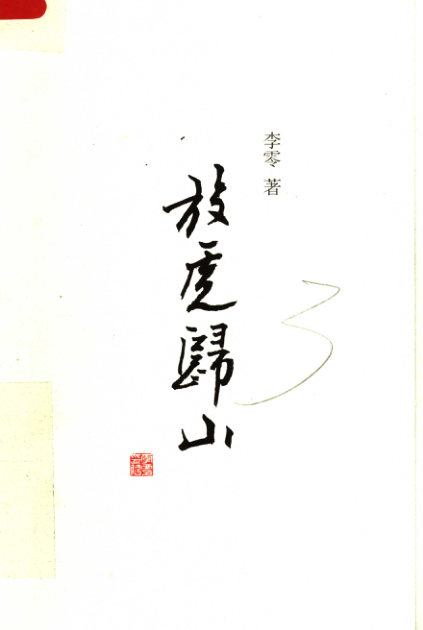 李零 著
放虎歸山
3